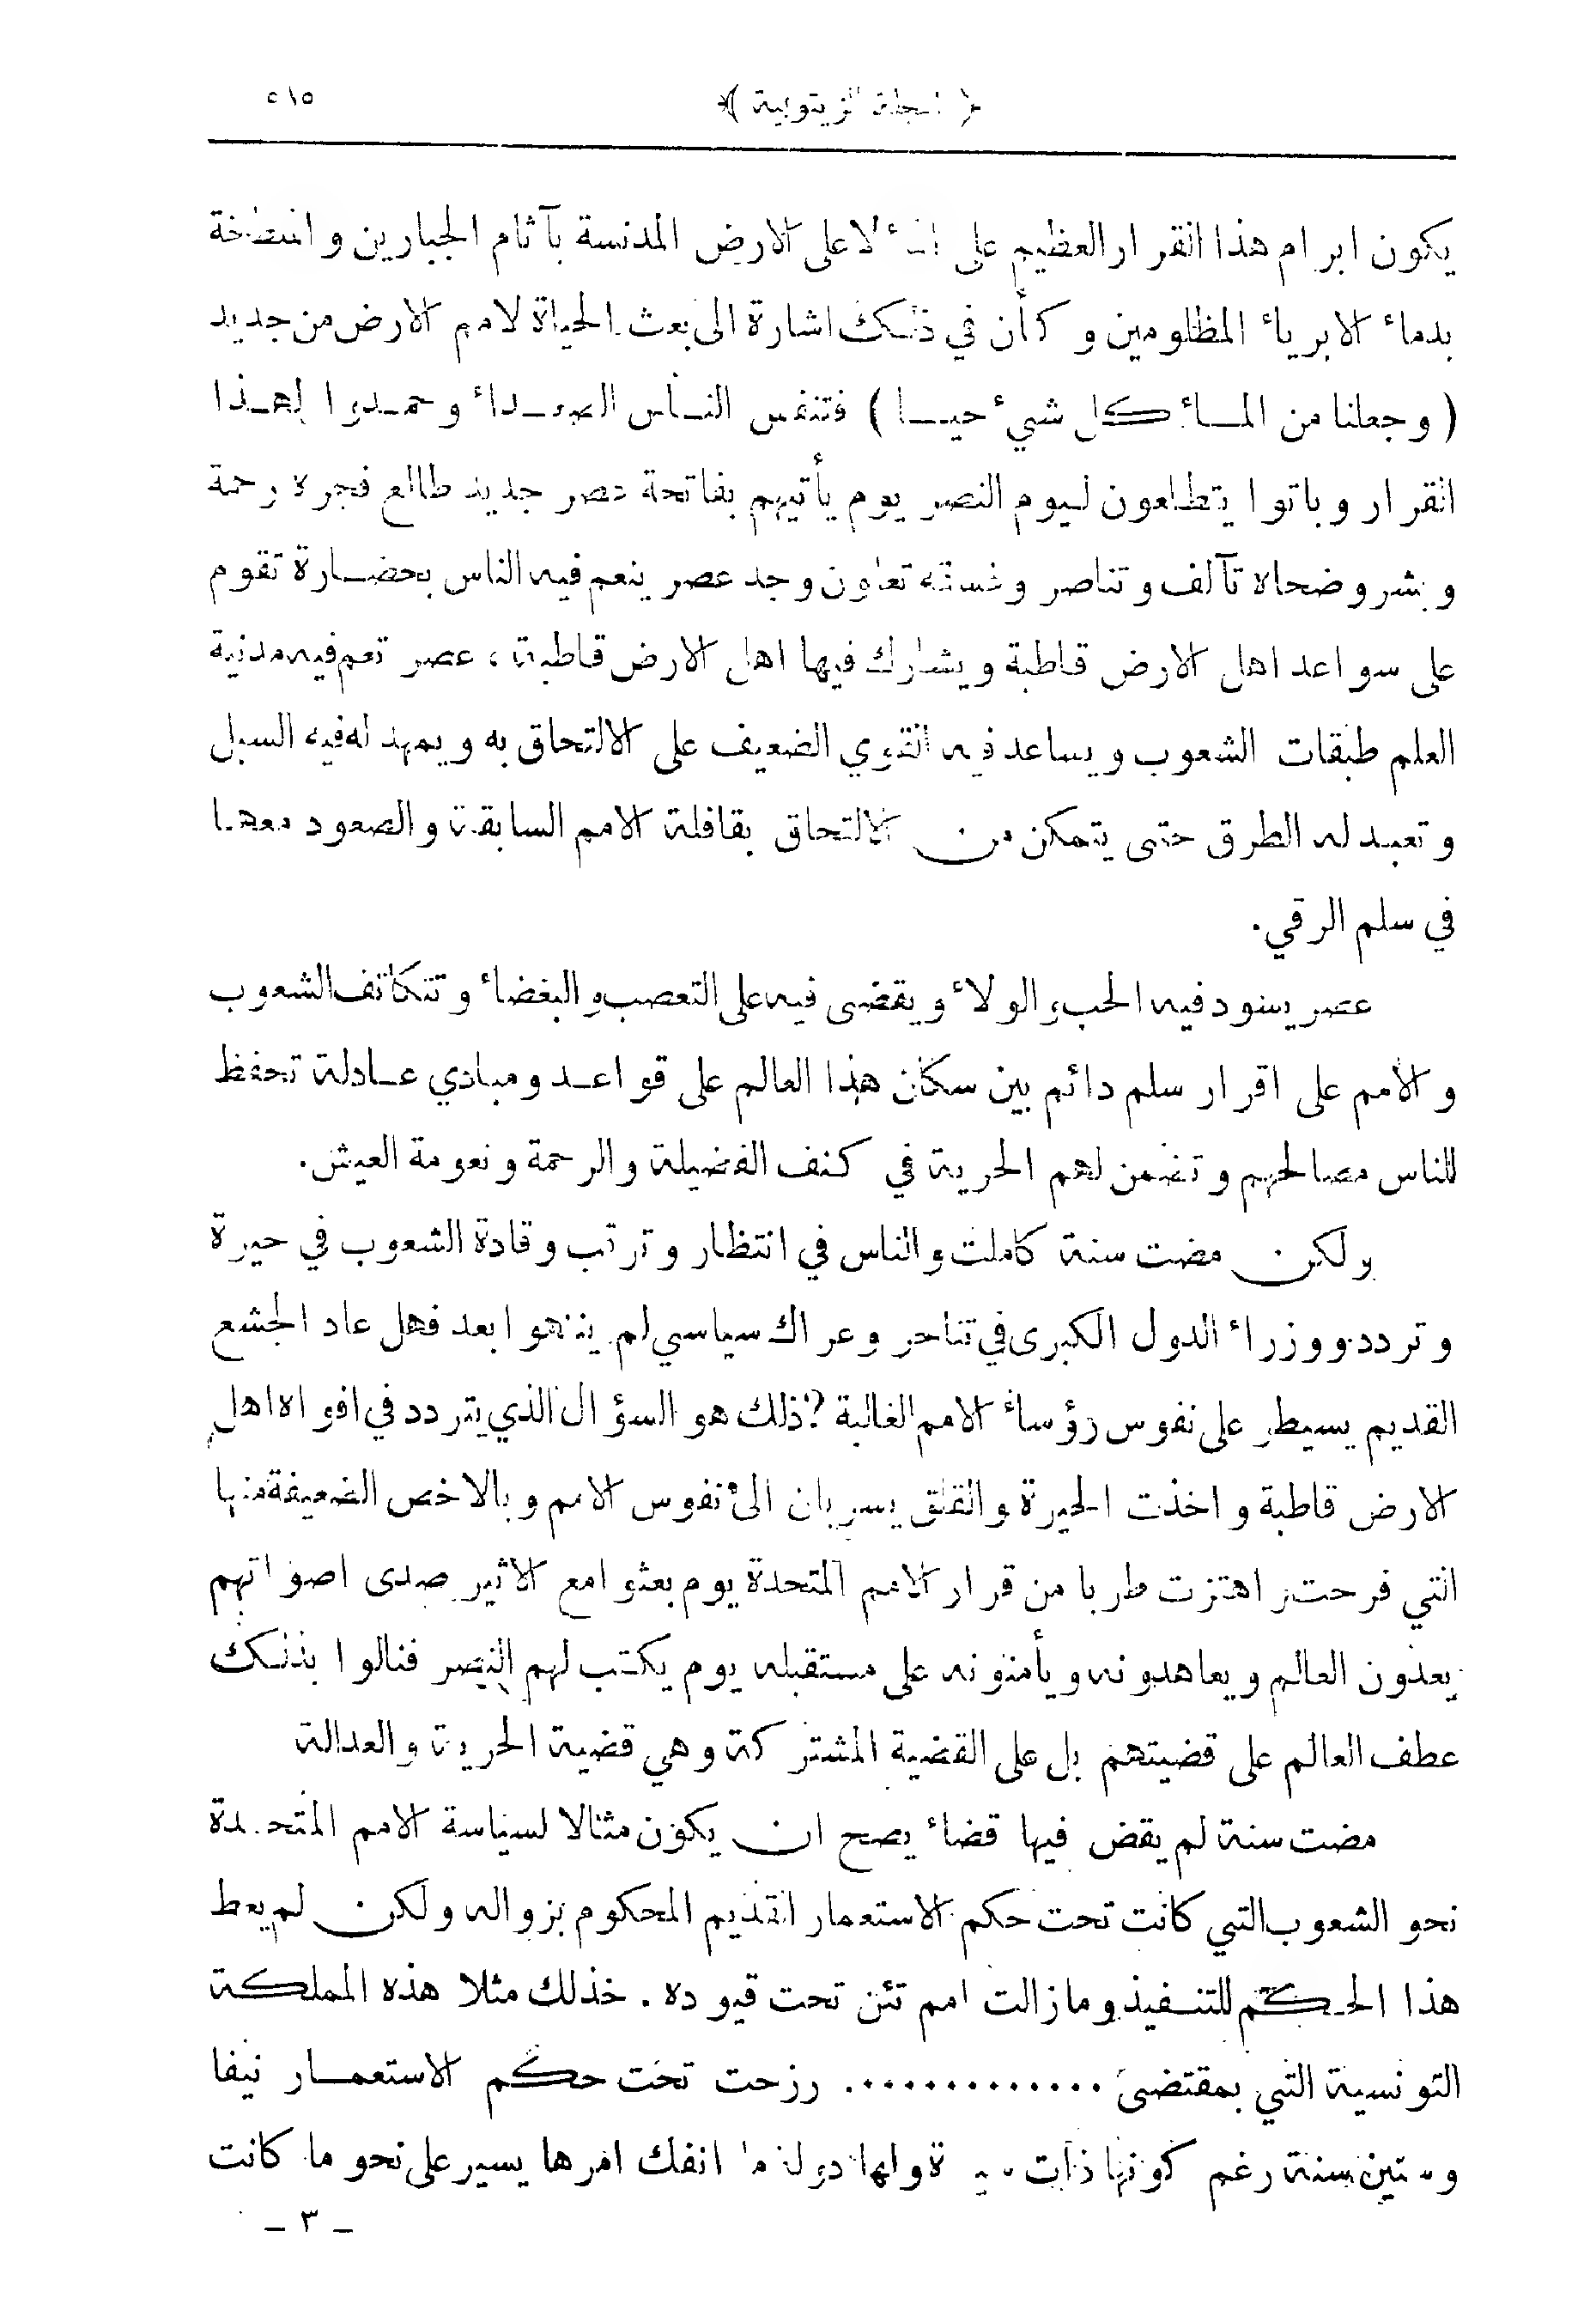 ﴿ المجلة الزيتونية ﴾ ٥١٥
يكون ابرام هذا القرار العظيم على الماء لا على الارض المدنسة بآثام الجبارين والمنضخة
بدماء الابرياء المظلومين وكأن في ذلك اشارة الى بعث الحياة لامم الارض من جديد
( وجعلنا من الماء كل شيء حيا ) فتنفس الناس الصعداء وحمدوا لهذا
القرار وباتوا يتطلعون ليوم النصر يوم يأتيهم بفاتحة عصر جديد طالع فجره رحمة
وبشر وضحاه تآلف وتناصر وغسقه تعاون وجد عصر ينعم فيه الناس بحضارة تقوم
على سواعد اهل الارض قاطبة ويشارك فيها اهل الارض قاطبة ، عصر تعم فيه مدنية
العلم طبقات الشعوب ويساعد فيه القوي الضعيف على الالتحاق به ويمهد له فيه السبل
وتعبد له الطرق حتى يتمكن من الالتحاق بقافلة الامم السابقة والصعود معها
في سلم الرقي .
عصر يسود فيه الحب والولاء ويقضى فيه على التعصب والبغضاء وتتكاتف الشعوب
والامم على اقرار سلم دائم بين سكان هذا العالم على قواعد ومبادي عادلة تحفظ
للناس مصالحهم وتضمن لهم الحرية في كنف الفضيلة والرحمة ونعومة العيش .
ولكن مضت سنة كاملة والناس في انتظار وترتب وقادة الشعوب في حيرة
وتردد ووزراء الدول الكبرى في تناحر وعراك سياسي لم ينهوا بعد فهل عاد الجشع
القديم يسيطر على نفوس رؤساء الامم الغالبة ؟ ذلك هو السؤال الذي يتردد في افواه اهل
الارض قاطبة واخذت الحيرة والقلق يسريان الى نفوس الامم وبالاخص الضعيفة منها
التي فرحت واهتزت طربا من قرار الامم المتحدة يوم بعثوا مع الاثير صدى اصواتهم
يعدون العالم ويعاهدونه ويأمنونه على مستقبله يوم يكتب لهم النصر فنالوا بذلك
عطف العالم على قضيتهم بل على القضية المشتركة وهي قضية الحرية والعدالة
مضت سنة لم يقض فيها قضاء يصح ان يكون مثالا لسياسة الامم المتحدة
نحو الشعوب التي كانت تحت حكم الاستعمار القديم المحكوم بزواله ولكن لم يعط
هذا الحكم للتنفيذ وما زالت امم تئن تحت قيوده . خذ لك مثلا هذه المملكة
التونسية التي بمقتضى ............. رزحت تحت حكم الاستعمار نيفا
وستين سنة رغم كونها ذات ولها دولة ما انفك امرها يسير على نحو ما كانت
– ٣ –